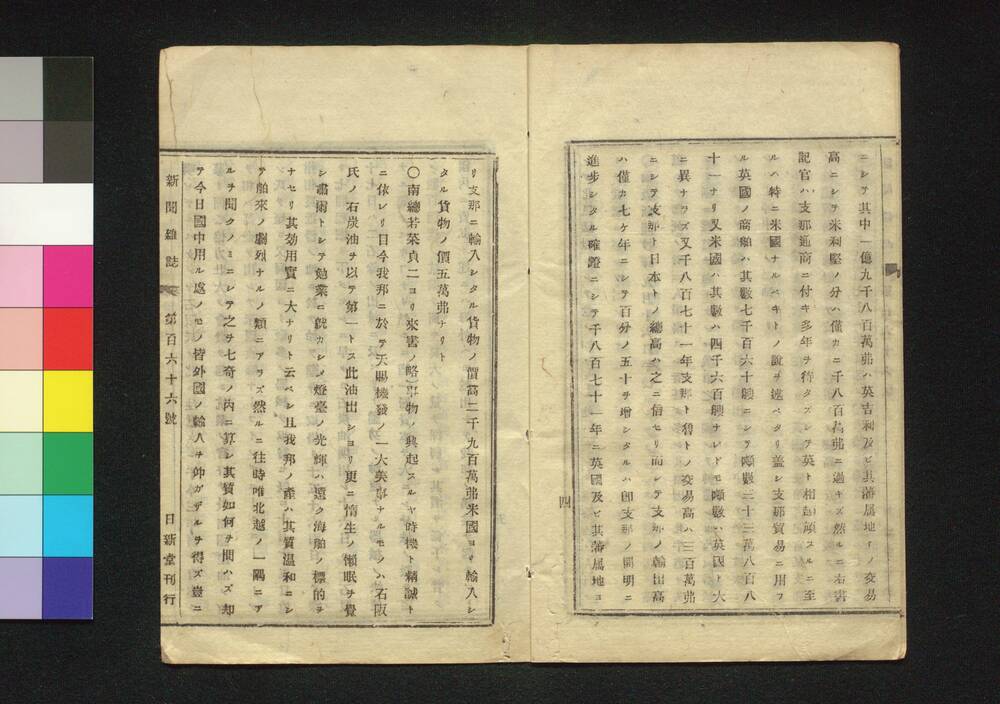 ニシテ其中一億九千八百萬弗ハ英吉利及ビ其藩属地トノ交易
高ニシテ米利堅ノ分ハ僅カニ千八百萬弗ニ過キズ然ルニ右書
記官ハ支那通商ニ付キ多年ヲ待タズシテ英ト相頡頏スルニ至
ルハ特ニ米國ナルベキトノ說ヲ述ベタリ盖シ支那貿易ニ用フ
ル英國ノ商舶ハ其數七千百六十艘ニシテ噸數三十三萬八百八
十一ナリ又米國ハ其數ハ四千六百艘ナレドモ噸數ハ英國ト大
ニ異ナラズ又千八百七十一年支那ト魯トノ交易高ハ三百萬弗
ニシテ支那ト日本トノ總高ハ之ニ倍セリ而シテ支那ノ輸出高
ハ僅カ七ケ年ニシテ百分ノ五十ヲ增シタルハ卽支那ノ開明ニ
進步シタル確證ニシテ千八百七十一年ニ英國及ビ其藩属地ヨ
四
リ支那ニ輸入シタル貨物ノ價高二千九百萬弗米國ヨリ輸入シ
タル貨物ノ價五萬弗ナリト
〇南總若菜貞二ヨリ來書ノ略)事物ノ興起スルヤ時機ト精誠ト
ニ依レリ曰今我邦ニ於テ天賜機發ノ一大美事ナルモノハ石阪
氏ノ石炭油ヲ以テ第一トス此油出シヨリ更ニ惰生ノ懶眠ヲ覺
シ肅爾トシテ勉業ニ就カシメ燈臺ノ光輝ハ遠ク海舶ノ標的ヲ
ナセリ其効用實ニ大ナリト云ベシ且我邦ノ產ハ其質温和ニシ
テ舶來ノ劇烈ナルノ類ニアラズ然ルニ往時唯北越ノ一隅ニア
ルヲ聞クノミニシテ之ヲ七奇ノ內ニ算シ其質如何ヲ問ハズ却
テ今日國中用ル處ノモノ皆外國ノ輸入ヲ仰ガザルヲ得ズ豈ニ
新聞雜誌 第百六十六號 日新堂刊行